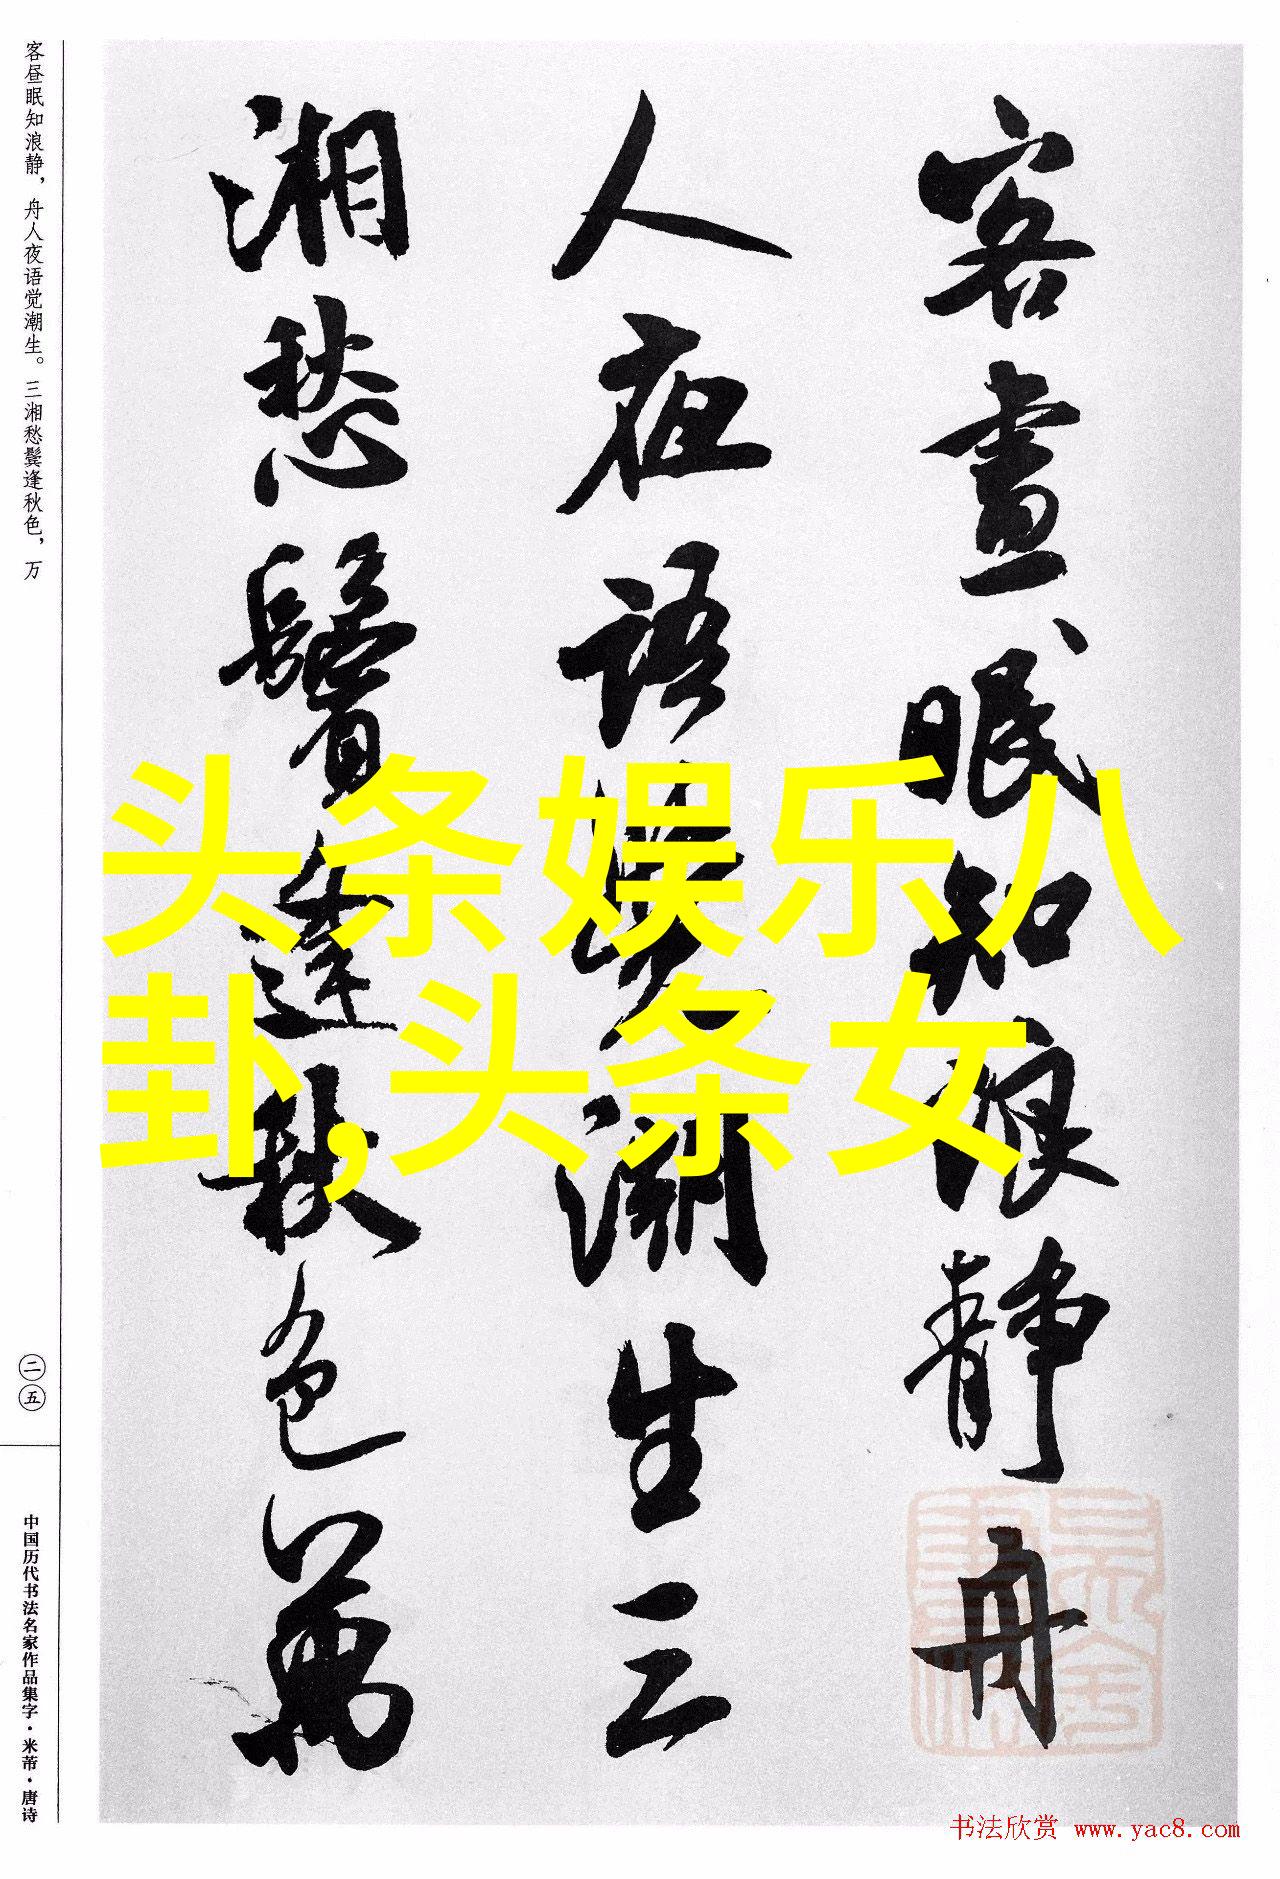 客昼眠知浪静，舟人夜语觉潮生。三湘愁鬓逢秋色，万
二五
中国历代书法名家作品集字·米芾·唐诗
客晝眠知浪静舟
人夜語覺潮生三
湘愁鬢逢秋色萬
头条娱乐八
卦,头条女
书法欣赏 www.yac8.com